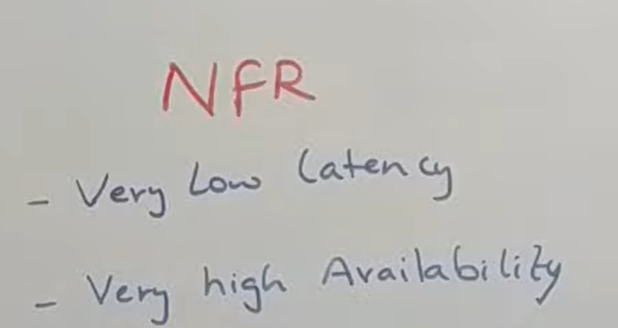 NFR
- Very Low Latency
- Very high Availability